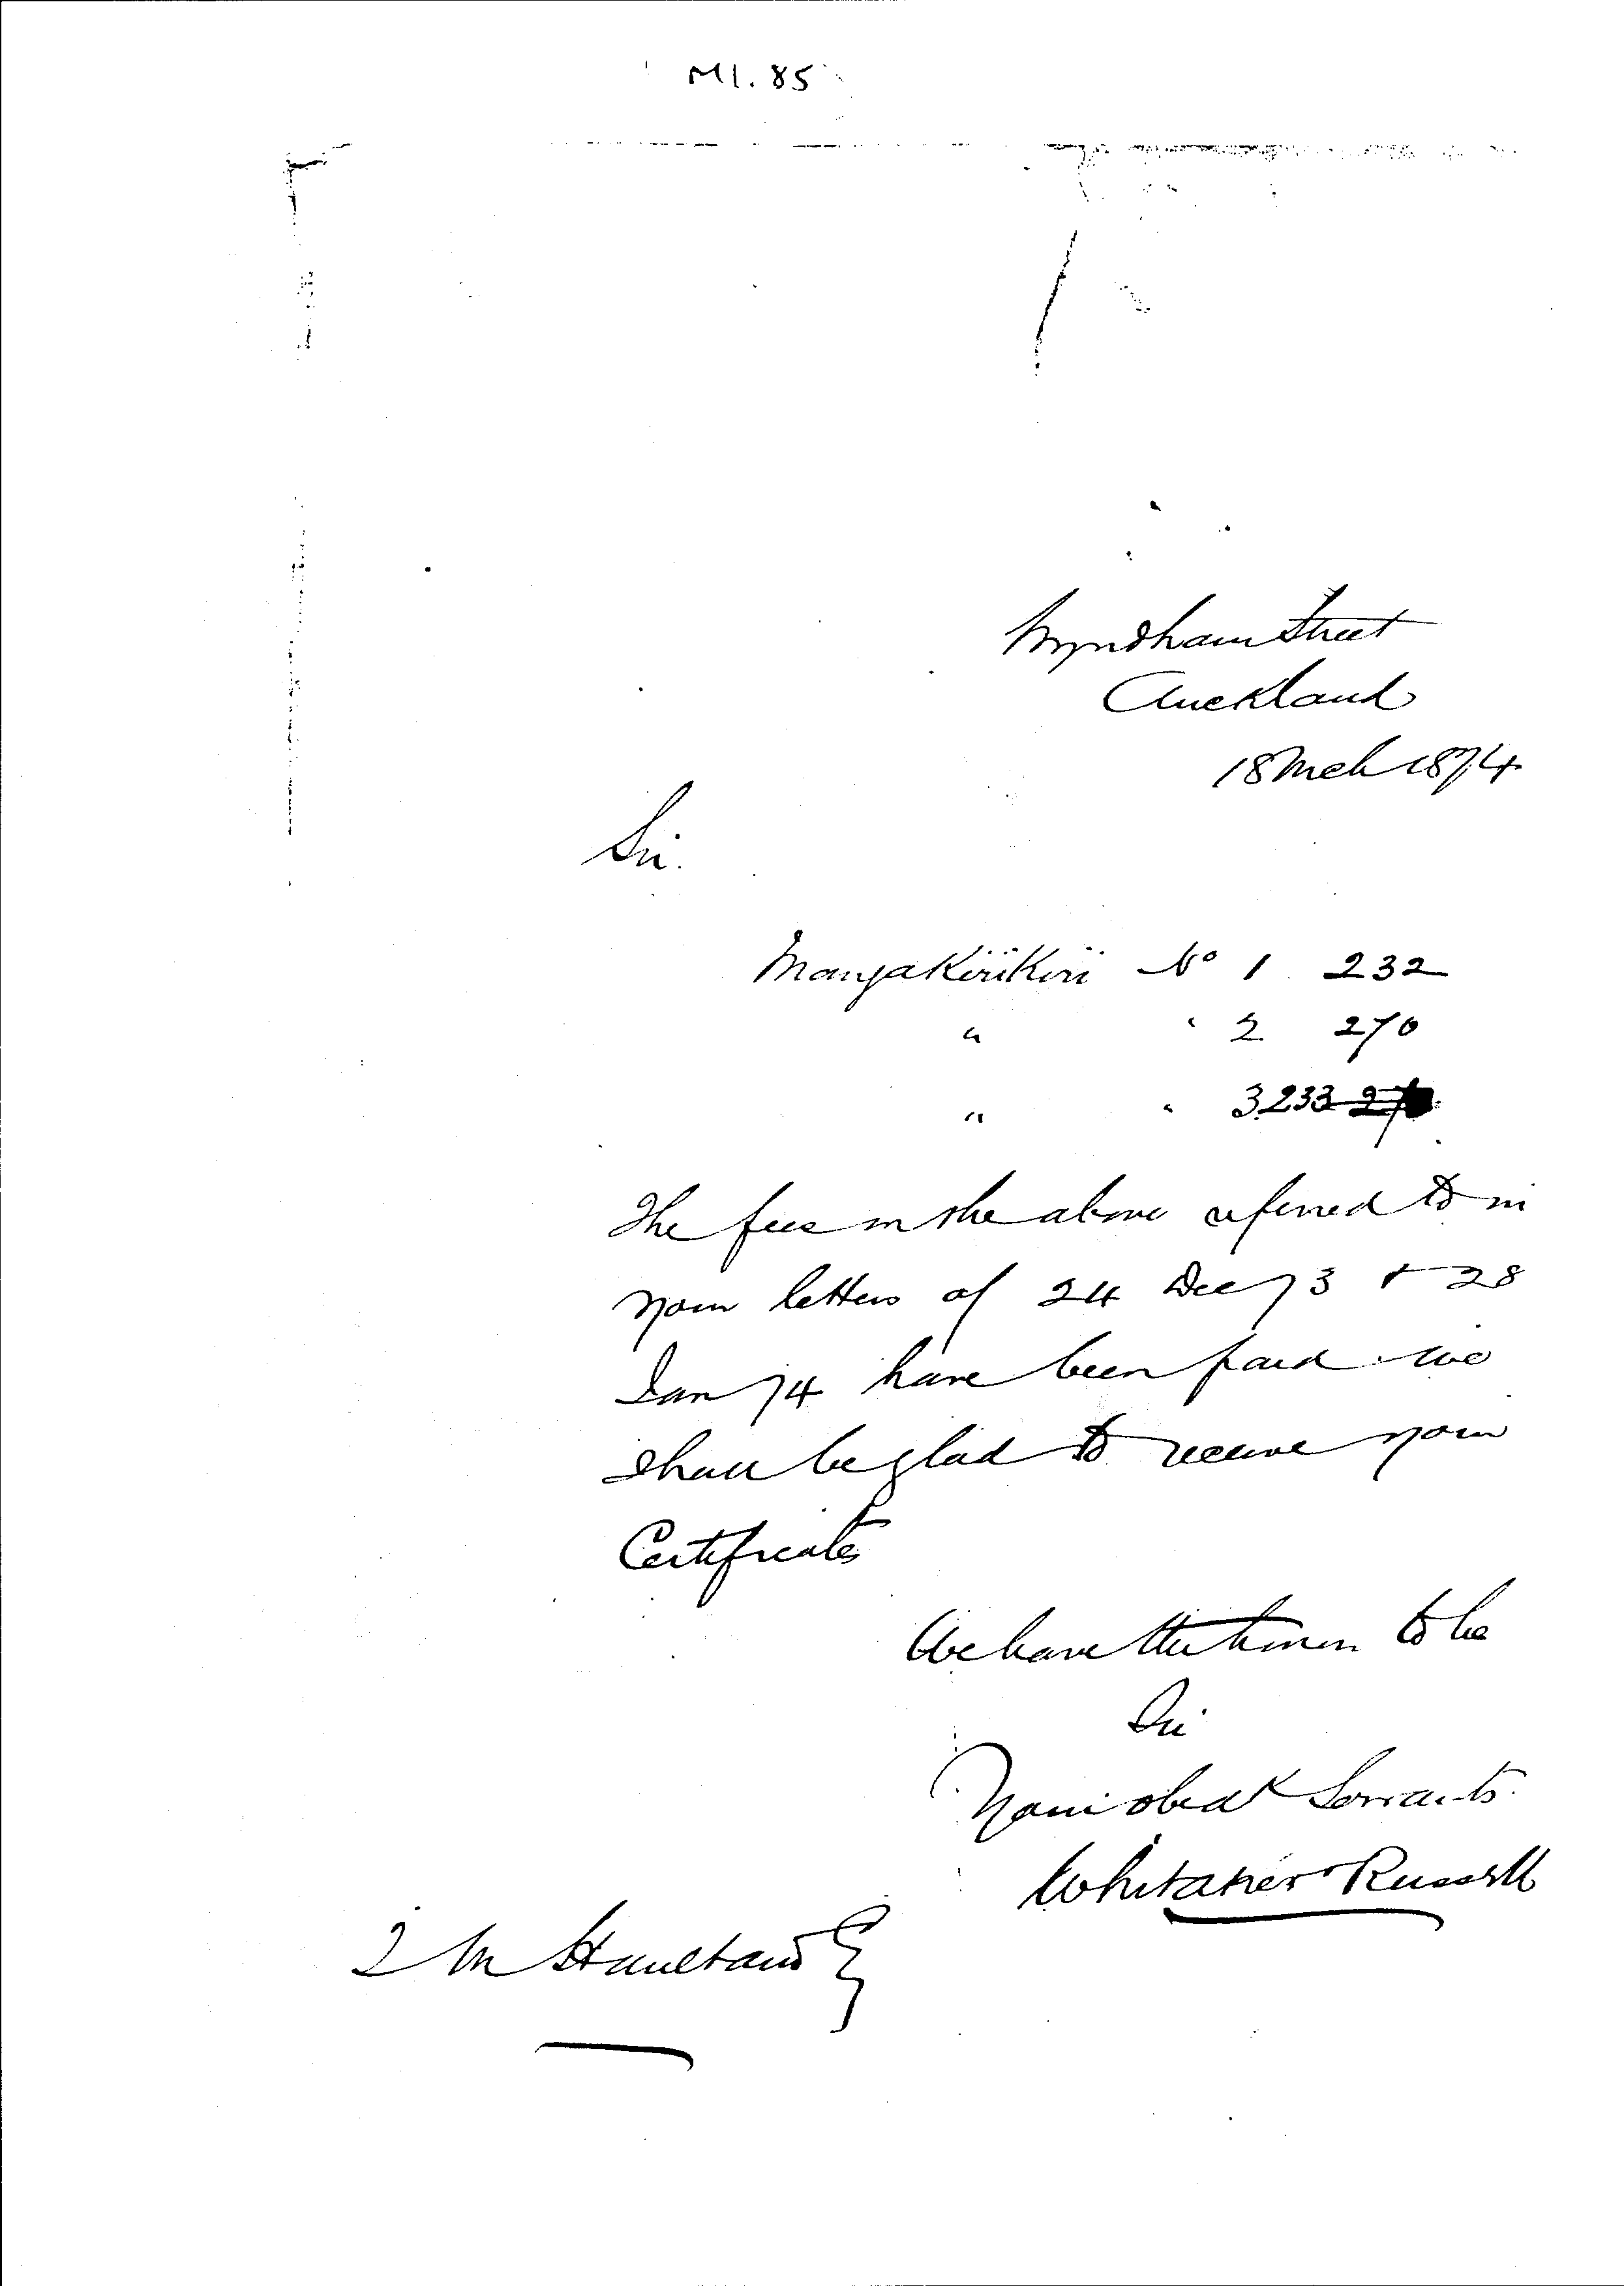 M1. 85
Wyndham Street
Auckland
18 Mch 1874
Sir.
Mangakirikiri No 1 232
" " 2 270
" " 3 233 27
The fees in the above referred to in
your letters of 24 Dec 73 & 28
Jan 74 have been paid we
shall be glad to receive your
Certificates
We have the honor to be
Sir
Your obedt Servants.
Whitaker & Russell
M Haultain Esq